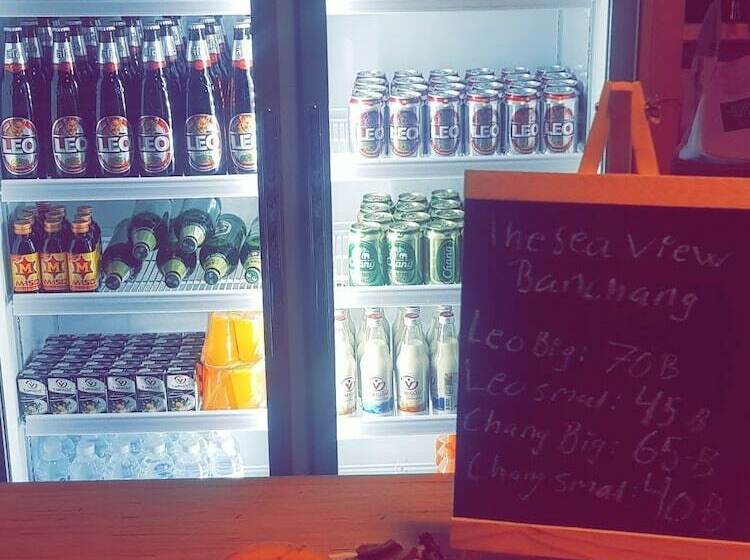 LEO LEO LEO LEO LEO LEO
LEO LEO LEO LEO LEO LEO
M M M
Chang Chang Chang
The Sea View
Banchang
Leo Big: 70B
Leo smal: 45 B
Chang Big: 65 B
Chang smal: 40 B